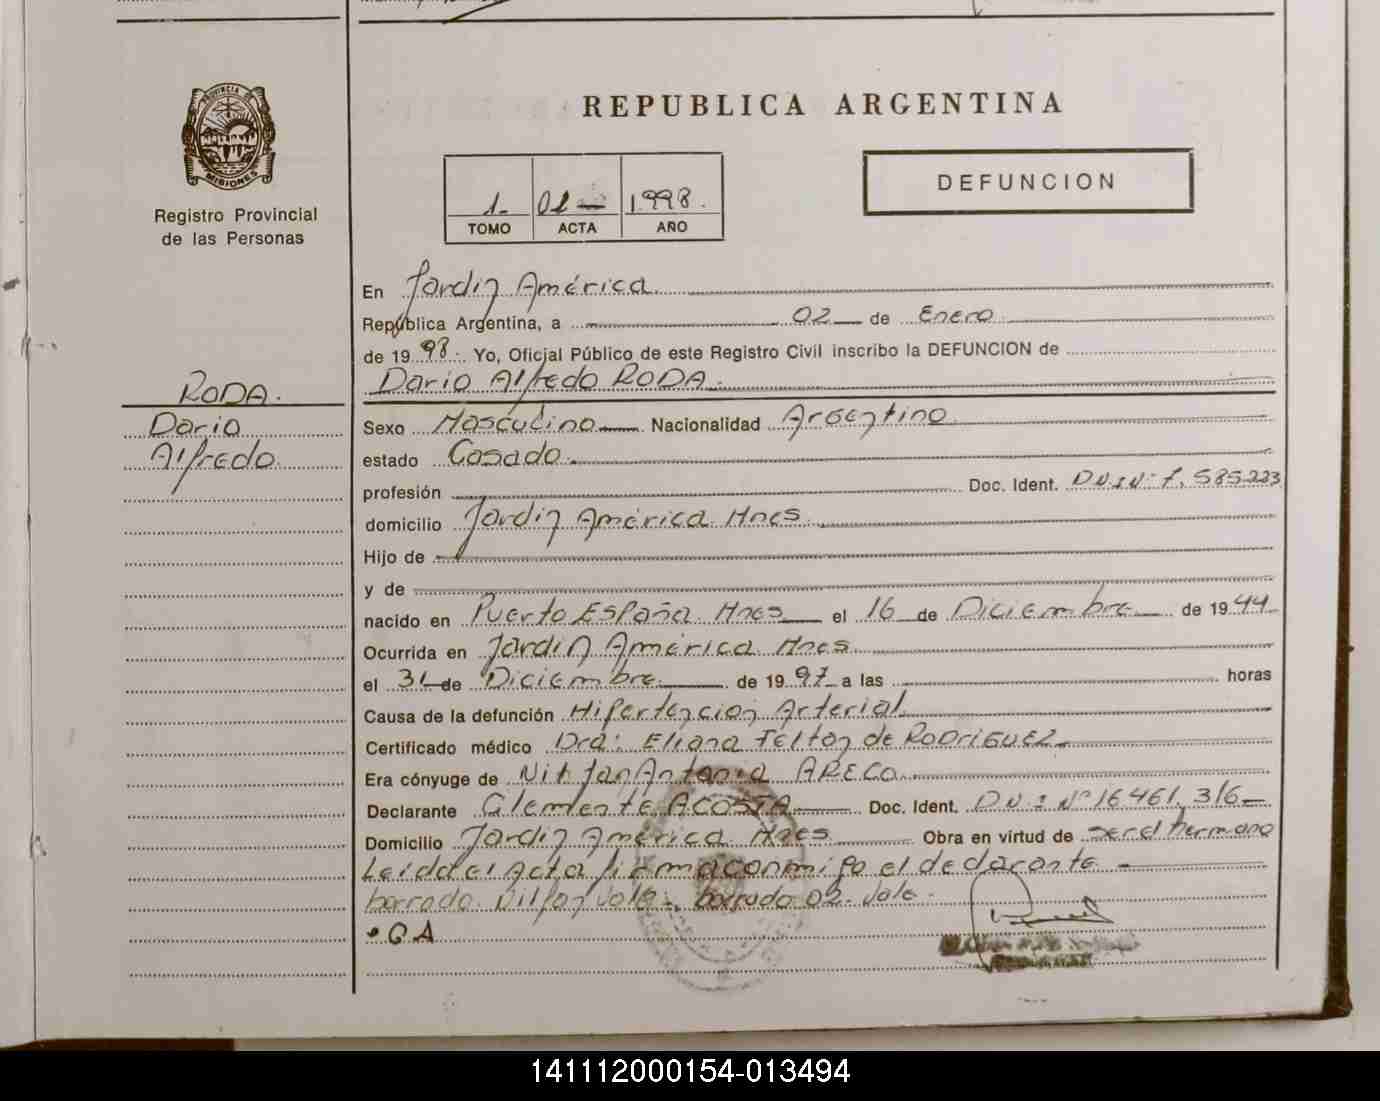 REPUBLICA ARGENTINA
PROVINCIA DE
MISIONES
Registro Provincial
de las Personas
1- 02 1998.
TOMO ACTA AÑO
DEFUNCION
En Jardin América
República Argentina, a 02 de Enero
de 1998. Yo, Oficial Público de este Registro Civil inscribo la DEFUNCION de
Dario Alfredo RODA.
RODA.
Dario
Alfredo
Sexo Masculino Nacionalidad Argentino
estado Casado.
profesión Doc. Ident. D.N.I Nº 7.585223
domicilio Jardin América Mnes
Hijo de
y de
nacido en Puerto España Mnes el 16 de Diciembre de 1944
Ocurrida en Jardin América Mnes
el 31 de Diciembre de 1997 a las horas
Causa de la defunción Hipertencion Arterial
Certificado médico Dra: Eliana Felton de RODRIGUEZ
Era cónyuge de Antonia ARECO
Declarante Clemente ACOSTA Doc. Ident. D N I Nº 16461.316
Domicilio Jardin América Mnes Obra en virtud de ser el hermano
Leída el Acta firma conmigo el declarante
borrado vale. borrado 02. Vale.
141112000154-013494